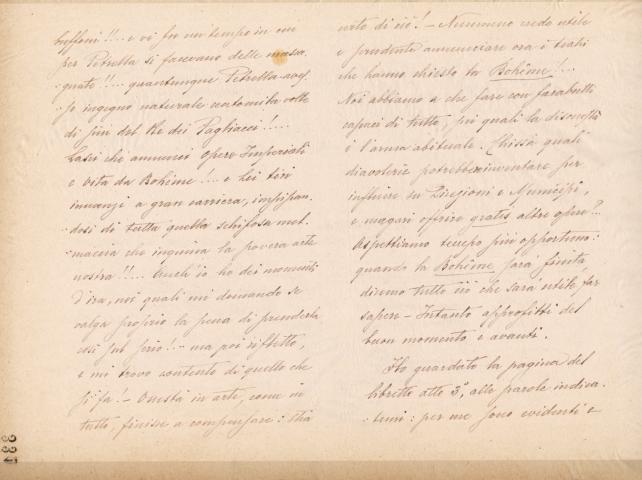 buffoni!!... e vi fu un tempo in cui
per Petrella si facevano delle masca-
-giate!!... quantunque Petrella aves-
se ingegno naturale centomila volte
di più del Re dei Pagliacci!....
Lasci che annunci opere Imperiali
e vita da Bohème!.. e Lei tiri
innanzi a gran carriera, impipan-
-dosi di tutta quella schifosa mel-
-maccia che inquina la povera arte
nostra!!... Anch'io ho dei momenti
d'ira, nei quali mi domando se
valga proprio la pena di prenderla
così sul serio!.. ma poi rifletto,
e mi trovo contento di quello che
si fa! - Onestà in arte, come in
tutto, finisce a compensare: stia
certo di ciò! - Nemmeno credo utile
e prudente annunciare ora i teatri
che hanno chiesto la Bohème!...
Noi abbiamo a che fare con farabutti
capaci di tutto, pei quali la disonestà
è l'arma abituale. Chissà quali
diavolerie potrebbero inventare per
influire su Direzioni e Municipi,
e magari offrire gratis altre opere?..
Aspettiamo tempo più opportuno:
quando la Bohème sarà finita
diremo tutto ciò che sarà utile far
sapere - Intanto approfitti del
buon momento e avanti.
Ho guardato la pagina del
libretto atto 3º, alle parole indica-
-temi: per me sono evidenti e